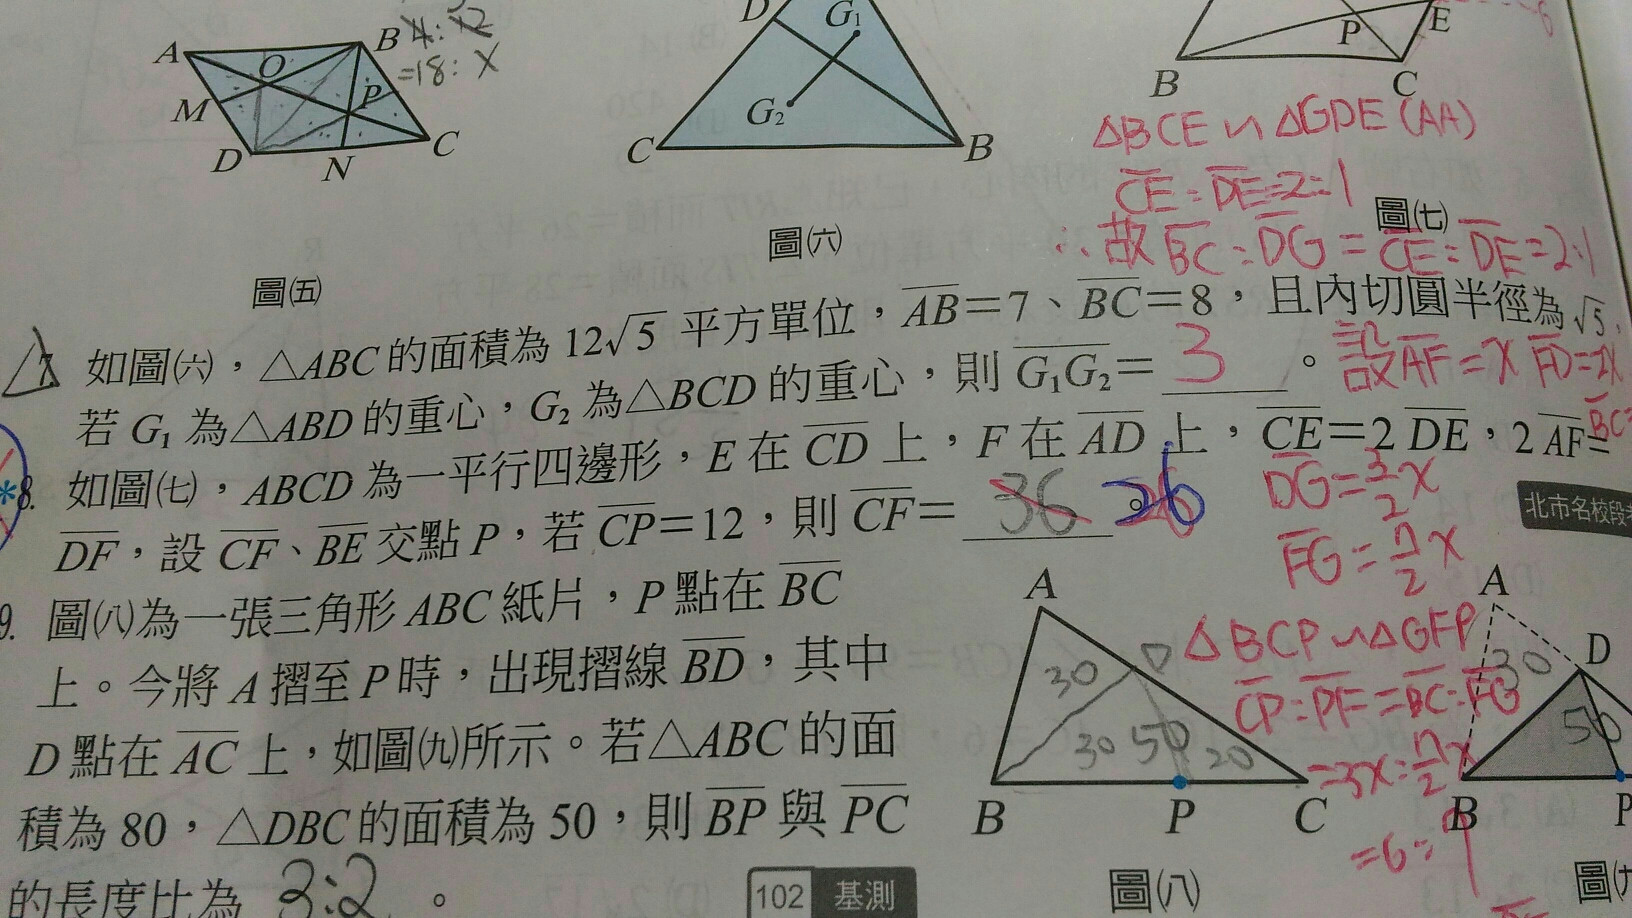 A
B
4:12
=18:x
O
M
P
D
N
C
圖㈤
D
G₁
G₂
C
B
圖㈥
P
E
B
C
△BCE∽△GDE(AA)
CE:DE=2:1
圖㈦
∴故BC:DG=CE:DE=2:1
7. 如圖㈥，△ABC的面積為12√5平方單位，AB=7、BC=8，且內切圓半徑為√5，
若G₁為△ABD的重心，G₂為△BCD的重心，則G₁G₂= 3 。
設AF=x FD=2x
BC=
*8. 如圖㈦，ABCD為一平行四邊形，E在CD上，F在AD上，CE=2DE，2AF=
DF，設CF、BE交點P，若CP=12，則CF= 36 。26
DG=3/2x
FG=7/2x
北市名校段考
9. 圖㈧為一張三角形ABC紙片，P點在BC
上。今將A摺至P時，出現摺線BD，其中
D點在AC上，如圖㈨所示。若△ABC的面
積為80，△DBC的面積為50，則BP與PC
的長度比為 3:2 。
102 基測
A
30
D
30
50
20
B
P
C
圖㈧
△BCP∽△GFP
CP:PF=BC:FG
=3x:7/2x
=6:7
A
30
D
50
B
P